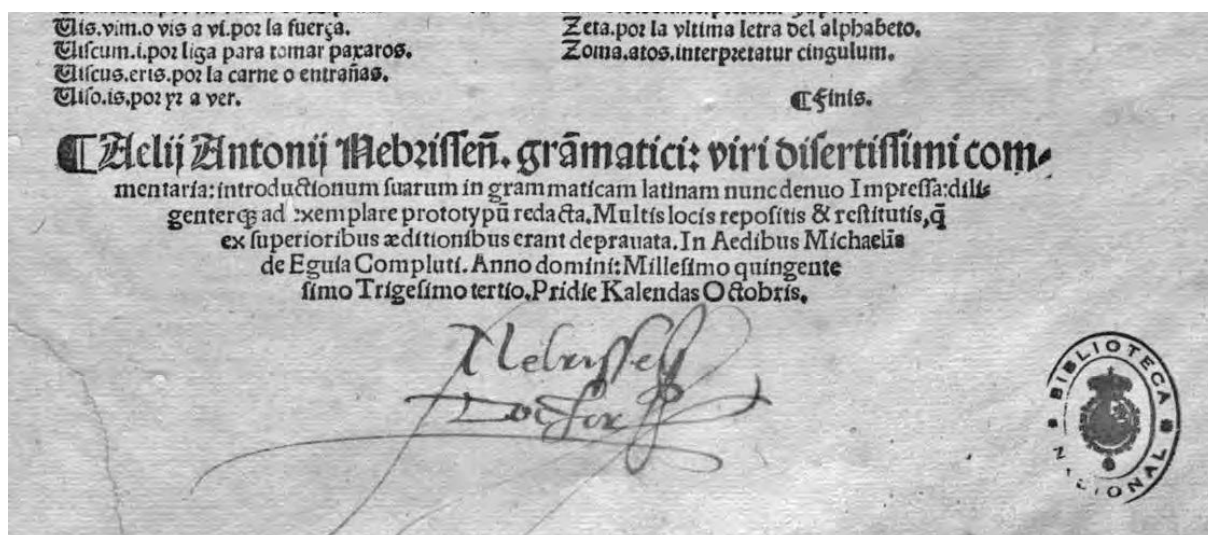 Uis.vim.o vis a vi.por la fuerça.
Uiscum.i.por liga para tomar paxaros.
Uiscus.eris.por la carne o entrañas.
Uiso.is.por yr a ver.
Zeta.por la vltima letra del alphabeto.
Zoma.atos.interpretatur cingulum.
¶Finis.
¶Aelij Antonij Nebrissen̄. grāmatici: viri disertissimi com-
mentaria: introductionum suarum in grammaticam latinam nunc denuo Impressa: dili-
genterq̃ ad exemplare prototypū redacta. Multis locis repositis & restitutis, q̄
ex superioribus æditionibus erant deprauata. In Aedibus Michaelis
de Eguia Compluti. Anno domini: Millesimo quingente
simo Trigesimo tertio. Pridie Kalendas Octobris.
Nebrissen
Doctor
BIBLIOTECA NACIONAL